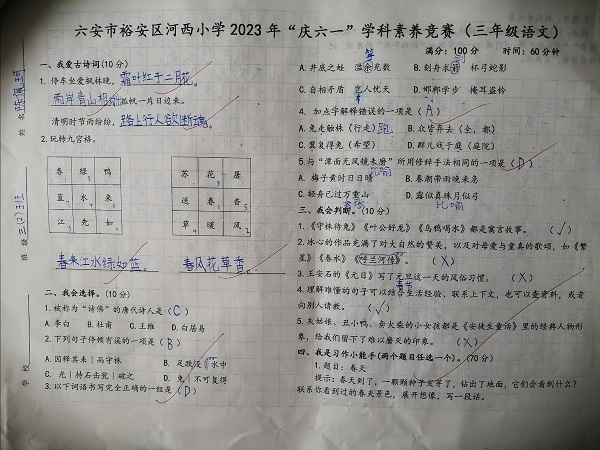 六安市裕安区河西小学2023年“庆六一”学科素养竞赛（三年级语文）
满分：100分 时间：60分钟
一、我爱古诗词(10分)
1. 停车坐爱枫林晚，霜叶红于二月花。
两岸青山相对出孤帆一片日边来。
清明时节雨纷纷，路上行人欲断魂。
2. 玩转九宫格。
春 经 鸭
蓝 水 来
江 先 如
苏 花 屠
送 春 香
草 暖 风
春来江水绿如蓝。 春风花草香。
二、我会选择。(10分)
1. 被称为“诗佛”的唐代诗人是（C）
A. 李白 B. 杜甫 C. 王维 D. 白居易
2. 下列句子停顿有误的一项是（B）
A. 因释其耒｜而守株 B. 足跋涉 水中
C. 元｜持石击瓮｜破之 D. 兔｜不可复得
3. 以下词语书写完全正确的一组是（D）
A. 井底之蛙 滥 充数 B. 刻舟求 杯弓蛇影
C. 自相矛盾 人忧天 D. 邯郸学步 掩耳盗铃
4. 加点字解释错误的一项是（A）
A. 兔走触株（行走）跑 B. 众皆弃去（全，都）
C. 冀复得兔（希望） D. 群儿戏于庭（庭院）
5. 与“潭面无风镜未磨”所用修辞手法相同的一项是（D）
A. 梅子黄时日日晴 B. 春潮带雨晚来急
C. 轻舟已过万重山 D. 露似真珠月似弓
比喻
三、我会判断。(10分)
1.《守株待兔》《叶公好龙》《乌鸦喝水》都是寓言故事。（√）
2. 冰心的作品充满了对大自然的赞美，以及对母爱与童真的歌颂，如《繁
星》《春水》《呼兰河传》。（X）
3. 王安石的《元日》写了元旦这一天的风俗习惯。（X）
4. 理解难懂的句子可以结合生活经验、联系上下文，也可以查资料，或者
向别人请教。（√）
5. 灰姑娘、丑小鸭、卖火柴的小女孩都是《安徒生童话》里的经典人物形
象，给我们留下了难以磨灭的印象。（X）
四、我是习作小能手(两个题目任选一个)。(70分)
1. 题目：春天
提示：春天到了，一颗颗种子发芽了，钻出了地面，它们会看到什么？
联系你看到过的春天景色，展开想像，写一段话。
姓名
班级 三(2)班
学校